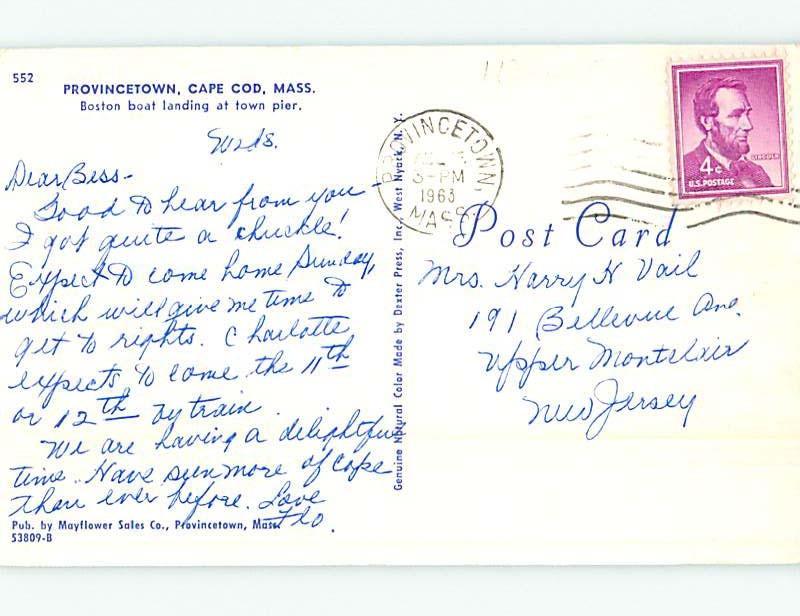 552
PROVINCETOWN, CAPE COD, MASS.
Boston boat landing at town pier.
Weds.
Dear Bess-
Good to hear from you -
I got quite a chuckle!
Expect to come home Sunday,
which will give me time to
get to rights. Charlotte
expects to come the 11th
or 12th by train.
We are having a delightful
time. Have seen more of Cape
than ever before. Love
Flo.
Pub. by Mayflower Sales Co., Provincetown, Mass.
53809-B
Genuine Natural Color Made by Dexter Press, Inc., West Nyack, N. Y.
PROVINCETOWN,
3-PM
1963
MASS.
4¢
LINCOLN
U.S. POSTAGE
Post Card
Mrs. Harry H Vail
191 Bellevue Ave.
Upper Montclair
New Jersey